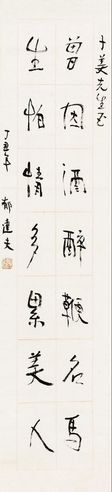 十美先生正
曾因酒醉鞭名馬
生怕情多累美人
丁丑年 郁達夫